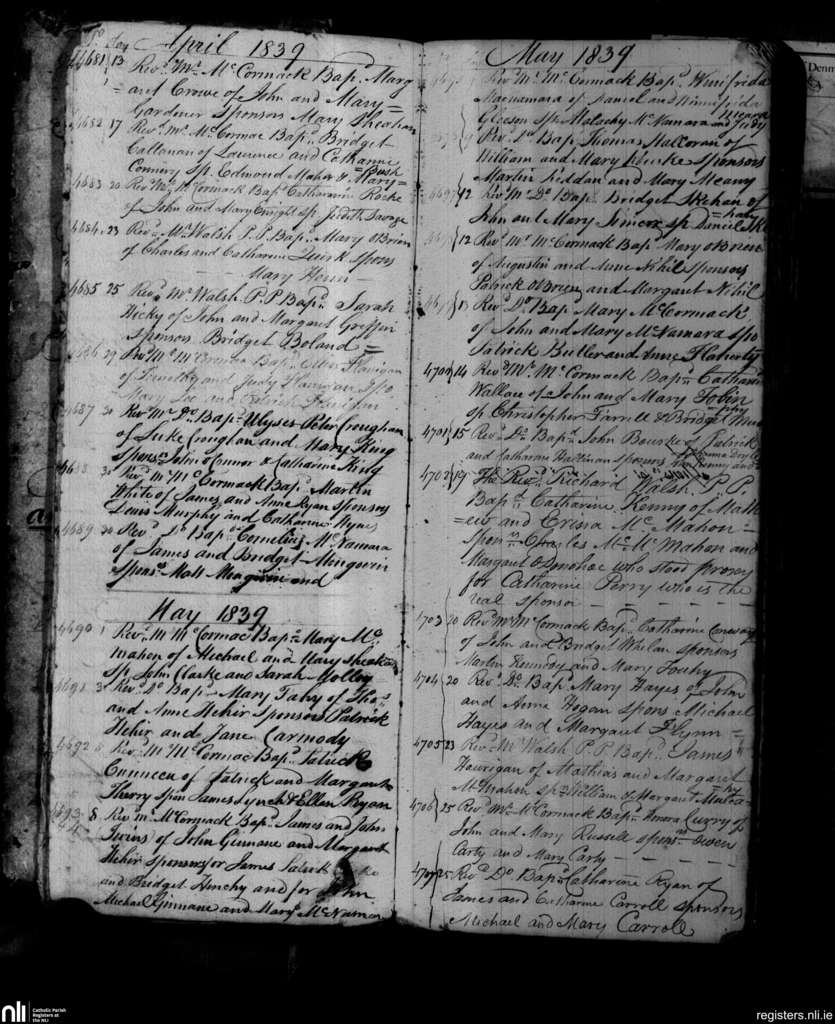 No Day April 1839
4681 13 Revd. Mr. McCormack Bapd. Marg
=aret Crowe of John and Mary=
Gardener Sponsors Mary Sheahan
4682 17 Revd. Mr. McCormac Bapd. Bridget
Callanan of Laurence and Catharine
Conniry Sp. Edmond Maher & Mary=
Bush
4683 20 Revd. Mr. McCormack Bapd. Catharine Roche
of John and Mary Enright Sp. Judith Savage
4684 23 Revd. Mr. Walsh P.P. Bapd. Mary OBrien
of Charles and Catharine Quirk Spons
Mary
4685 25 Revd. Mr. Walsh P.P. Bapd. Sarah
Hicky of John and Margaret Griffin
Sponsors Bridget Boland =
4686 29 Revd. Mr. McCormac Bapd. Ellen Flanigan
of Timothy and Judy Flanigan Spo
Mary Lee and Patrick Flanigan
4687 30 Revd. Mr. Do. Bapd. Ulysses Peter Croughan
of Luke Croughan and Mary King
Sponsrs. John OConnor & Catharine King
4688 30 Revd. Mr. McCormack Bapd. Martin
White of James and Anne Ryan Sponsors
Denis Murphy and Catharine Hynes
4689 30 Revd. Do. Bapd. Cornelius McNamara
of James and Bridget Mongovin
Spons. Matt and
May 1839
4690 1 Revd. M McCormac Bapd. Mary Mc
mahon of Michael and Mary Sheahan
Sp. John Clarke and Sarah Molloy
4691 3 Revd. Do. Bapd. Mary Fahy of Thos.
and Anne Hehir Sponsors Patrick
Hehir and Jane Carmody
4692 Revd. Mr. McCormac Bapd. Patrick
Cunneen of Patrick and Margaret
Thurry Spon James Lynch & Ellen Ryan
4693 8 Revd. Mr. McCormack Bapd. James and John
94 Twins of John Ginnane and Margaret
Hehir Sponsors for James Patrick
and Bridget Hinchy and for John
Michael Ginnane and Mary McNamara
May 1839
Revd. Mr. McCormack Bapd. Winifrida
Macnamara of Daniel and Winnifrida
Gleeson Sp. Malachy McNamara and Judy
Meara
Revd. Do. Bap. Thomas Halloran of
William and Mary Rourke Sponsors
Martin Liddan and Mary Meany
12 Revd. Mr. Do. Bapd. Bridget Skehan of
John and Mary sp. Daniel Ske
=han
12 Revd. Mr. McCormack Bapd. Mary OBrien
of Augustin and Anne Nihil Sponsors
Patrick OBrien and Margaret Nihil
13 Revd. Do. Bap. Mary McCormack
of John and Mary McNamara Spo
Patrick Butler and Anne Flaherty
4700 14 Revd. Mr. McCormack Bapd. Catharine
Wallace of John and Mary Tobin
sp Christopher Tirrell & Bridget
4701 15 Revd. Do. Bapd. John Bourke of Patrick
and Catharine Halloran sponsors
4702 19 The Revd. Richard Walsh P.P.
Bapd. Catharine Kenny of Math
=ew and Teresa McMahon =
Sponrs. Charles Mc McMahon and
Margaret ODonohoe who stood proxy
for Catharine Perry who is the
real sponsor
4703 20 Revd. Mr. McCormack Bapd. Catharine Conway
of John and Bridget Whelan sponsors
Martin Kennedy and Mary Touhy
4704 20 Revd. Do. Bapd. Mary Hayes of John
and Anne Hogan spons Michael
Hayes and Margaret Flynn =
4705 23 Revd. Mr. Walsh P.P. Bapd. James
Hourigan of Mathias and Margaret
McMahon sp. William & Margaret Mulca
hy
4706 25 Revd. Mr. McCormack Bapd. Honora Curry of
John and Mary Russell sponsrs. Owen
Carty and Mary Carty
4707 25 Revd. Do. Bapd. Catharine Ryan of
James and Catharine Carroll sponsors
Michael and Mary Carroll
Denn
nli Catholic Parish
Registers at
the NLI
registers.nli.ie